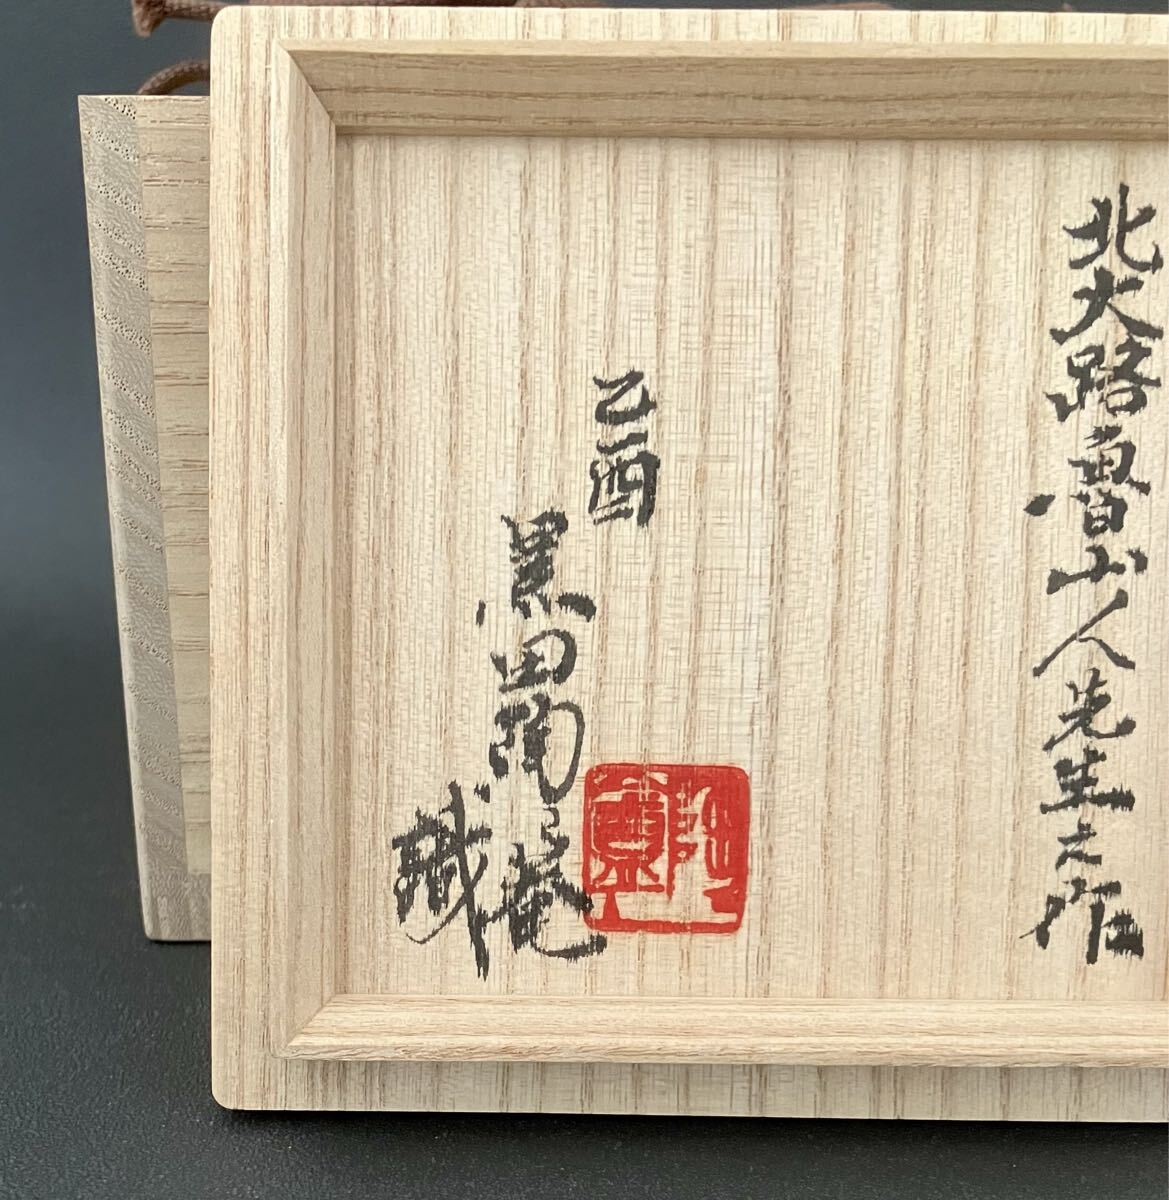 北大路魯山人先生之作
乙酉
黒田陶菴
識